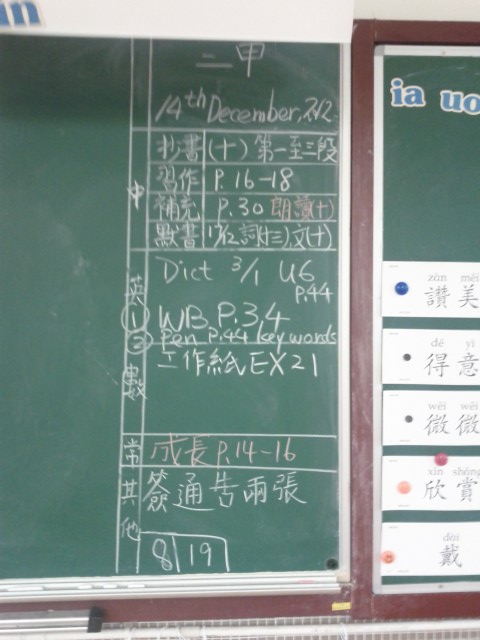 un
二甲
14th December, 2012
中
抄書 (十) 第一至三段
習作 P. 16-18
補充 P. 30 朗讀(十)
默書 17/12 詞(十三), 文(十)
英
Dict 3/1 U6
P.44
① WB P.3,4
② Pen P.44 key words
數
工作紙 EX21
常 成長 P.14-16
其他 簽通告兩張
8 19
ia uo
zàn měi
讚美
dé yì
得意
wēi wēi
微微
xīn shǎng
欣賞
dài
戴